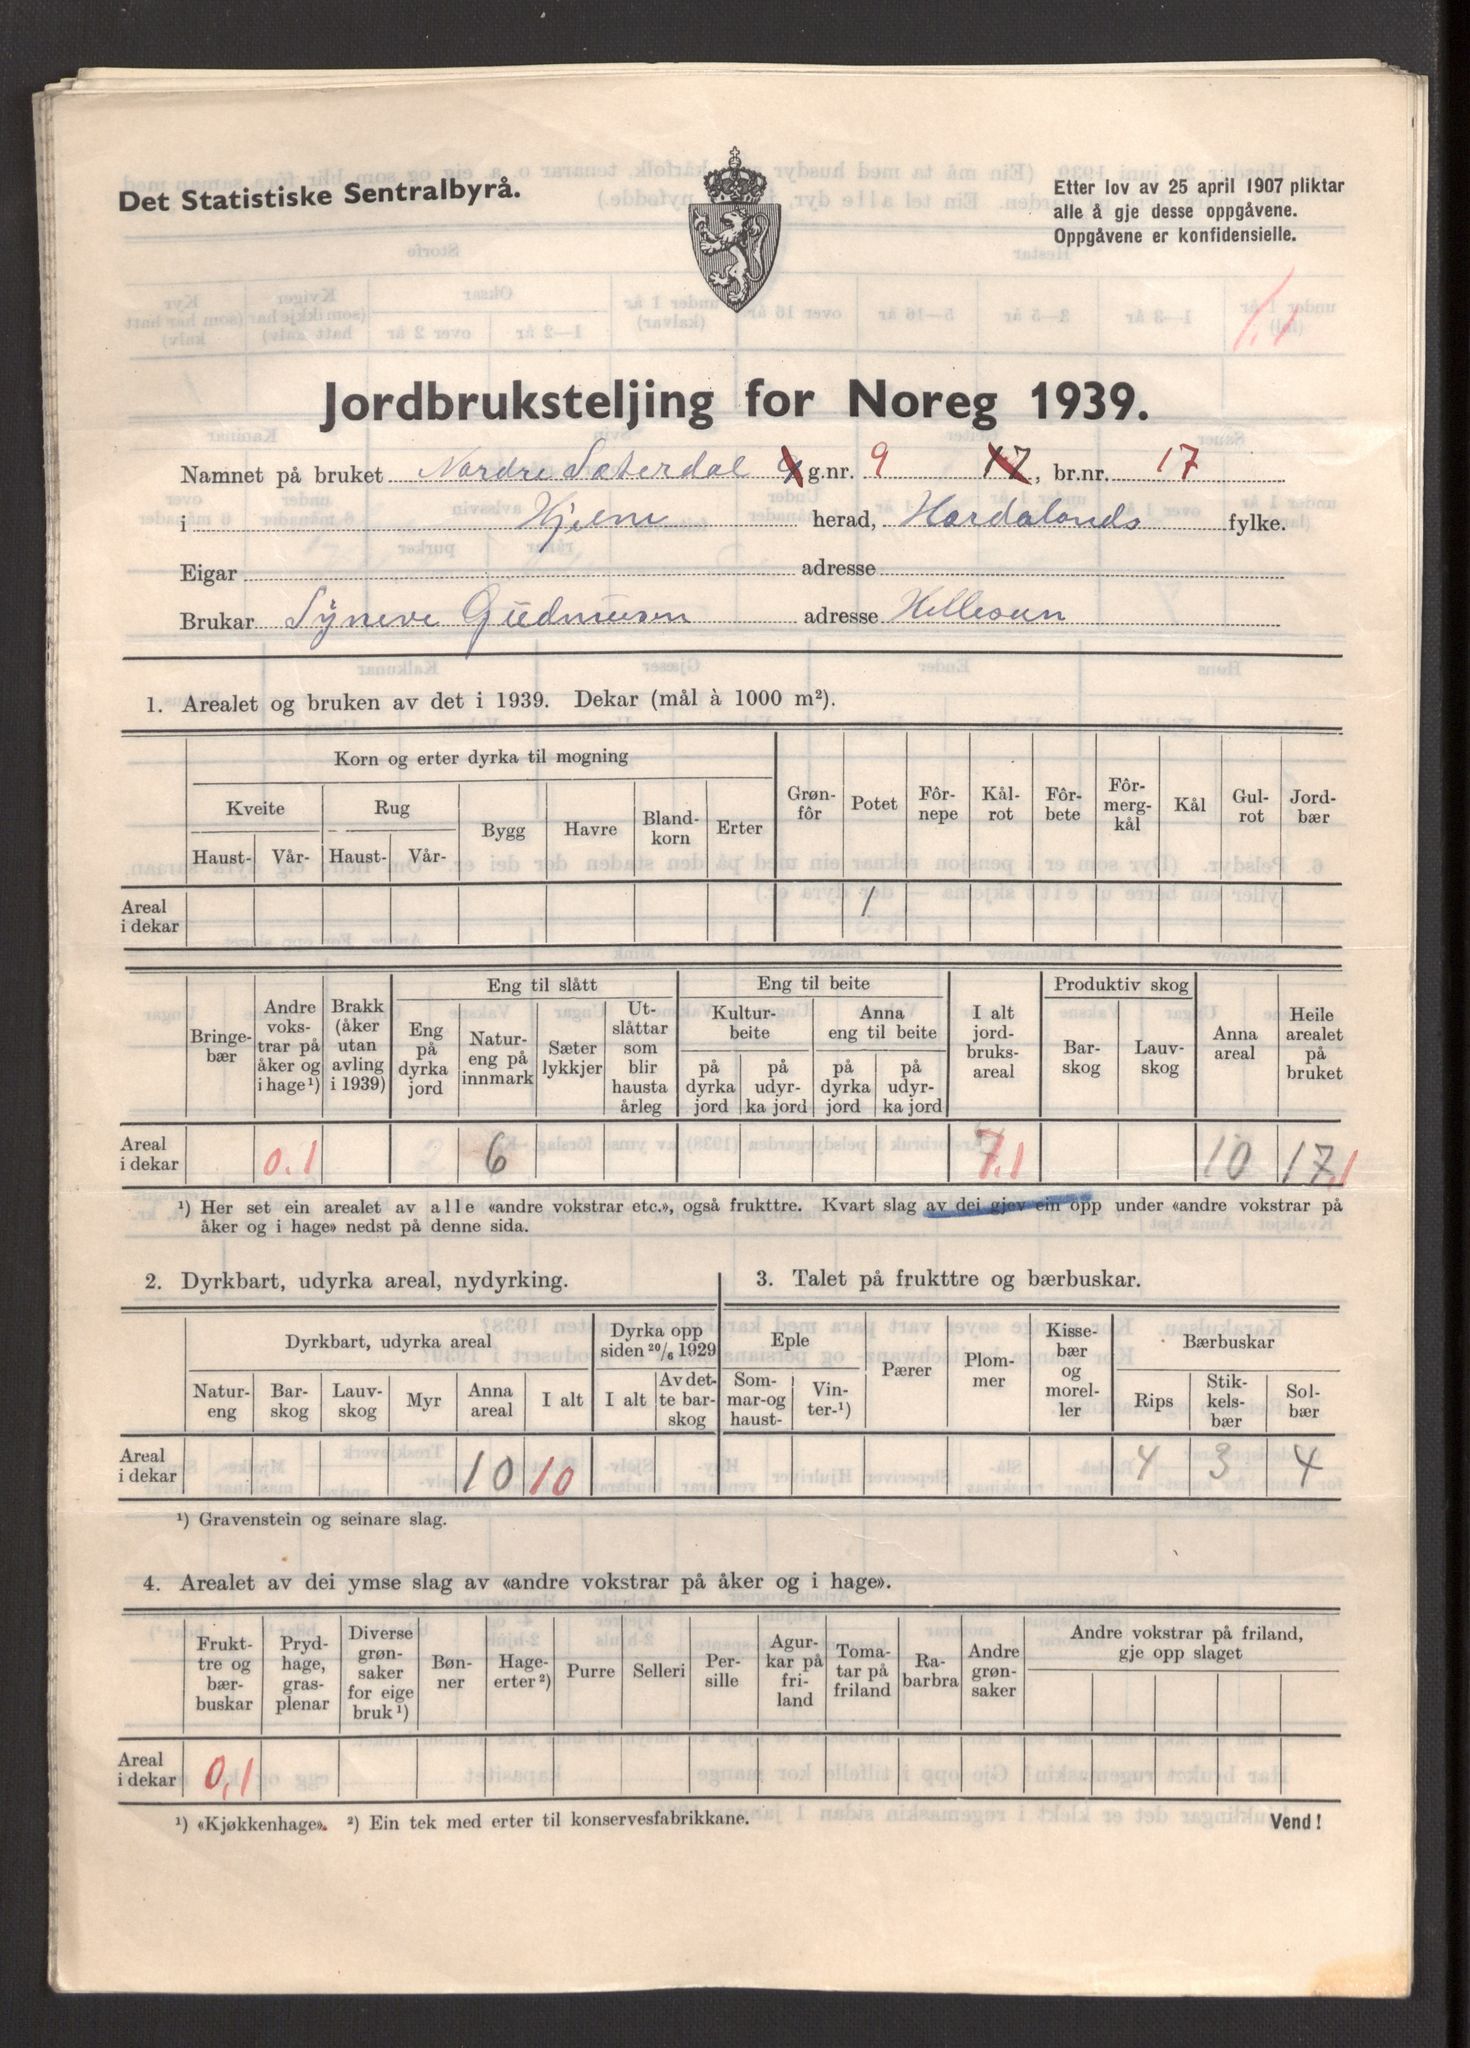 Det Statistiske Sentralbyrå.
Etter lov av 25 april 1907 pliktar
alle å gje desse oppgåvene.
Oppgåvene er konfidensielle.
1.1
Jordbruksteljing for Noreg 1939.
Namnet på bruket Nordre Sæterdal 9 g.nr. 9 17, br.nr. 17
i Hjelme herad, Hordalands fylke.
Eigar adresse
Brukar Syneve Gudmusen adresse Hellesun
1. Arealet og bruken av det i 1939. Dekar (mål à 1000 m²).
Korn og erter dyrka til mogning
Kveite Rug Bygg Havre Bland-korn Erter Grøn-fôr Potet Fôr-nepe Kål-rot Fôr-bete Fôr-mergkål Kål Gul-rot Jord-bær
Haust- Vår- Haust- Vår-
Areal
i dekar 1
Bringe-bær Andre vokstrar på åker og i hage¹) Brakk (åker utan avling i 1939) Eng til slått Eng til beite I alt jord-bruks-areal Produktiv skog Anna areal Heile arealet på bruket
Eng på dyrka jord Natureng på innmark Sæter lykkjer Utslåttar som blir hausta årleg Kultur-beite Anna eng til beite Bar-skog Lauv-skog
på dyrka jord på udyrka jord på dyrka jord på udyrka jord
Areal
i dekar 0.1 6 7.1 10 17.1
¹) Her set ein arealet av alle «andre vokstrar etc.», også frukttre. Kvart slag av dei gjev ein opp under «andre vokstrar på
åker og i hage» nedst på denne sida.
2. Dyrkbart, udyrka areal, nydyrking.
3. Talet på frukttre og bærbuskar.
Dyrkbart, udyrka areal Dyrka opp siden 20/6 1929 Eple Pærer Plommer Kissebær og moreller Bærbuskar
Natureng Barskog Lauvskog Myr Anna areal I alt I alt Av dette barskog Sommar-og haust- Vinter-¹) Rips Stikkelsbær Solbær
Areal
i dekar 10 10 4 3 4
¹) Gravenstein og seinare slag.
4. Arealet av dei ymse slag av «andre vokstrar på åker og i hage».
Frukttre og bærbuskar Prydhage, grasplenar Diverse grønsaker for eige bruk¹) Bønner Hageerter²) Purre Selleri Persille Agurkar på friland Tomatar på friland Rabarbra Andre grønsaker Andre vokstrar på friland, gje opp slaget
Areal
i dekar 0,1
¹) «Kjøkkenhage». ²) Ein tek med erter til konservesfabrikkane.
Vend!